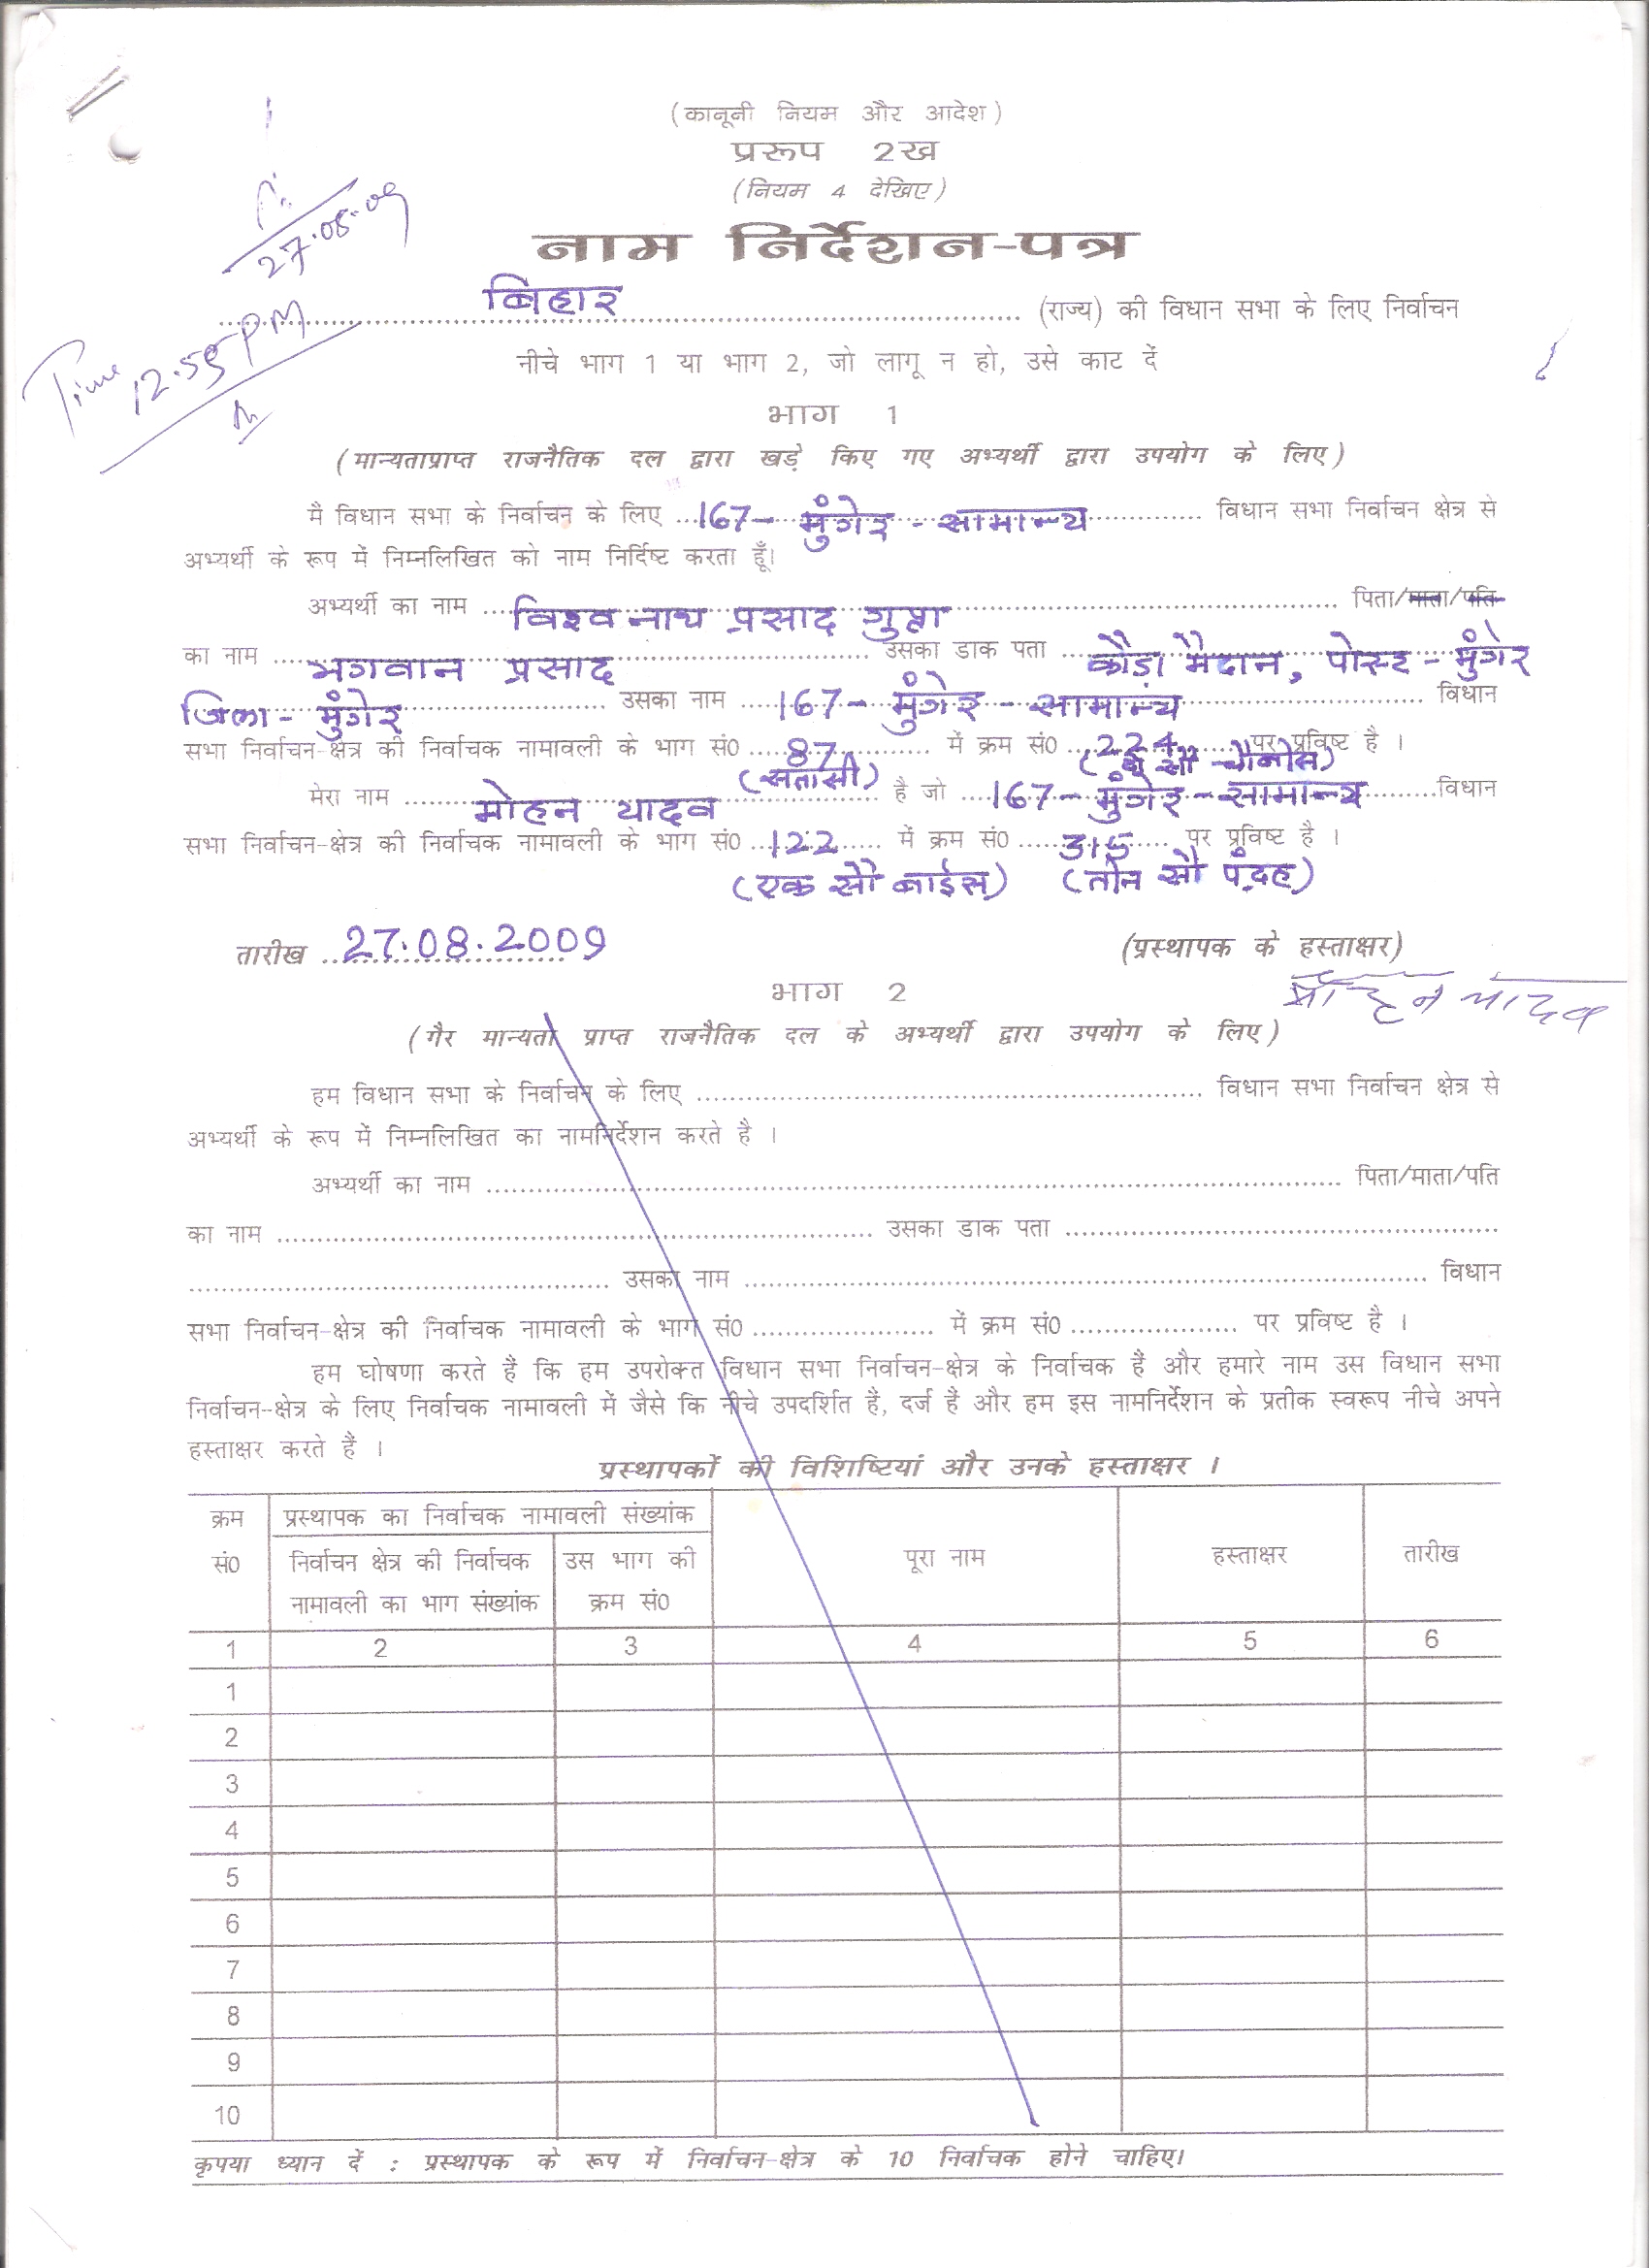 (कानूनी नियम और आदेश)
प्ररूप 2ख
(नियम 4 देखिए)
27.08.09
नाम निर्देशन-पत्र
बिहार (राज्य) की विधान सभा के लिए निर्वाचन
Time 12.55 PM
नीचे भाग 1 या भाग 2, जो लागू न हो, उसे काट दें
भाग 1
(मान्यताप्राप्त राजनैतिक दल द्वारा खड़े किए गए अभ्यर्थी द्वारा उपयोग के लिए)
मै विधान सभा के निर्वाचन के लिए 167- मुंगेर - सामान्य विधान सभा निर्वाचन क्षेत्र से
अभ्यर्थी के रूप में निम्नलिखित को नाम निर्दिष्ट करता हूँ।
अभ्यर्थी का नाम विश्वनाथ प्रसाद गुप्ता पिता/माता/पति
का नाम भगवान प्रसाद उसका डाक पता कौड़ा मैदान, पोस्ट - मुंगेर
जिला - मुंगेर उसका नाम 167- मुंगेर - सामान्य विधान
सभा निर्वाचन-क्षेत्र की निर्वाचक नामावली के भाग सं0 87 में क्रम सं0 224 पर प्रविष्ट है ।
(सतासी) (दो सौ चौबीस)
मेरा नाम मोहन यादव है जो 167- मुंगेर - सामान्य विधान
सभा निर्वाचन-क्षेत्र की निर्वाचक नामावली के भाग सं0 122 में क्रम सं0 315 पर प्रविष्ट है ।
(एक सौ बाईस) (तीन सौ पंद्रह)
तारीख 27.08.2009 (प्रस्थापक के हस्ताक्षर)
मोहन यादव
भाग 2
(गैर मान्यता प्राप्त राजनैतिक दल के अभ्यर्थी द्वारा उपयोग के लिए)
हम विधान सभा के निर्वाचन के लिए विधान सभा निर्वाचन क्षेत्र से
अभ्यर्थी के रूप में निम्नलिखित का नामनिर्देशन करते है ।
अभ्यर्थी का नाम पिता/माता/पति
का नाम उसका डाक पता
उसका नाम विधान
सभा निर्वाचन-क्षेत्र की निर्वाचक नामावली के भाग सं0 में क्रम सं0 पर प्रविष्ट है ।
हम घोषणा करते हैं कि हम उपरोक्त विधान सभा निर्वाचन-क्षेत्र के निर्वाचक हैं और हमारे नाम उस विधान सभा
निर्वाचन-क्षेत्र के लिए निर्वाचक नामावली में जैसे कि नीचे उपदर्शित हैं, दर्ज हैं और हम इस नामनिर्देशन के प्रतीक स्वरूप नीचे अपने
हस्ताक्षर करते हैं ।
प्रस्थापकों की विशिष्टियां और उनके हस्ताक्षर ।
क्रम सं0 प्रस्थापक का निर्वाचक नामावली संख्यांक पूरा नाम हस्ताक्षर तारीख
निर्वाचन क्षेत्र की निर्वाचक उस भाग की
नामावली का भाग संख्यांक क्रम सं0
1 2 3 4 5 6
1
2
3
4
5
6
7
8
9
10
कृपया ध्यान दें : प्रस्थापक के रूप में निर्वाचन-क्षेत्र के 10 निर्वाचक होने चाहिए।